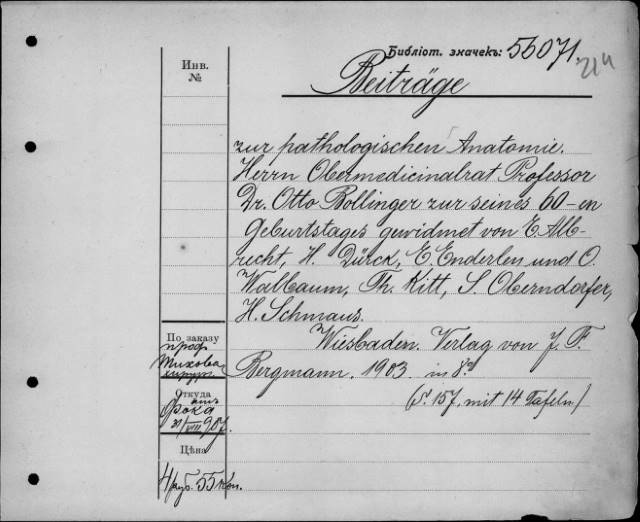 Библіот. значекъ: 56071.
214
Инв.
№
Beiträge
zur pathologischen Anatomie.
Herrn Obermedicinalrat Professor
Dr. Otto Bollinger zur seines 60-en
Geburtstages gewidmet von E. Alb-
recht, H. Dürck, E. Enderlen und O.
Walbaum, Th. Kitt, S. Oberndorfer,
H. Schmaus.
Wiesbaden. Verlag von J. F.
Bergmann. 1903. in 8°
(S. 157. mit 14 Tafeln.)
По заказу
проф.
Тихова
Откуда
отъ
Фока
/VIII 907.
Цѣна
4 руб. 55 коп.